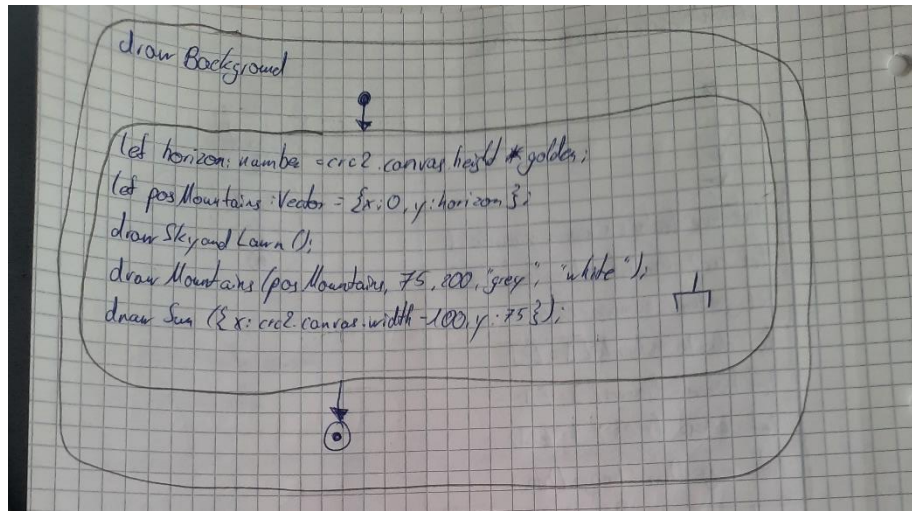 draw Background
let horizon: number = crc2.canvas.height * golden;
let posMountains: Vector = {x: 0, y: horizon};
drawSkyandLawn();
draw Mountains (posMountains, 75, 200, "grey", "white");
draw Sun ({x: crc2.canvas.width -100, y: 75});